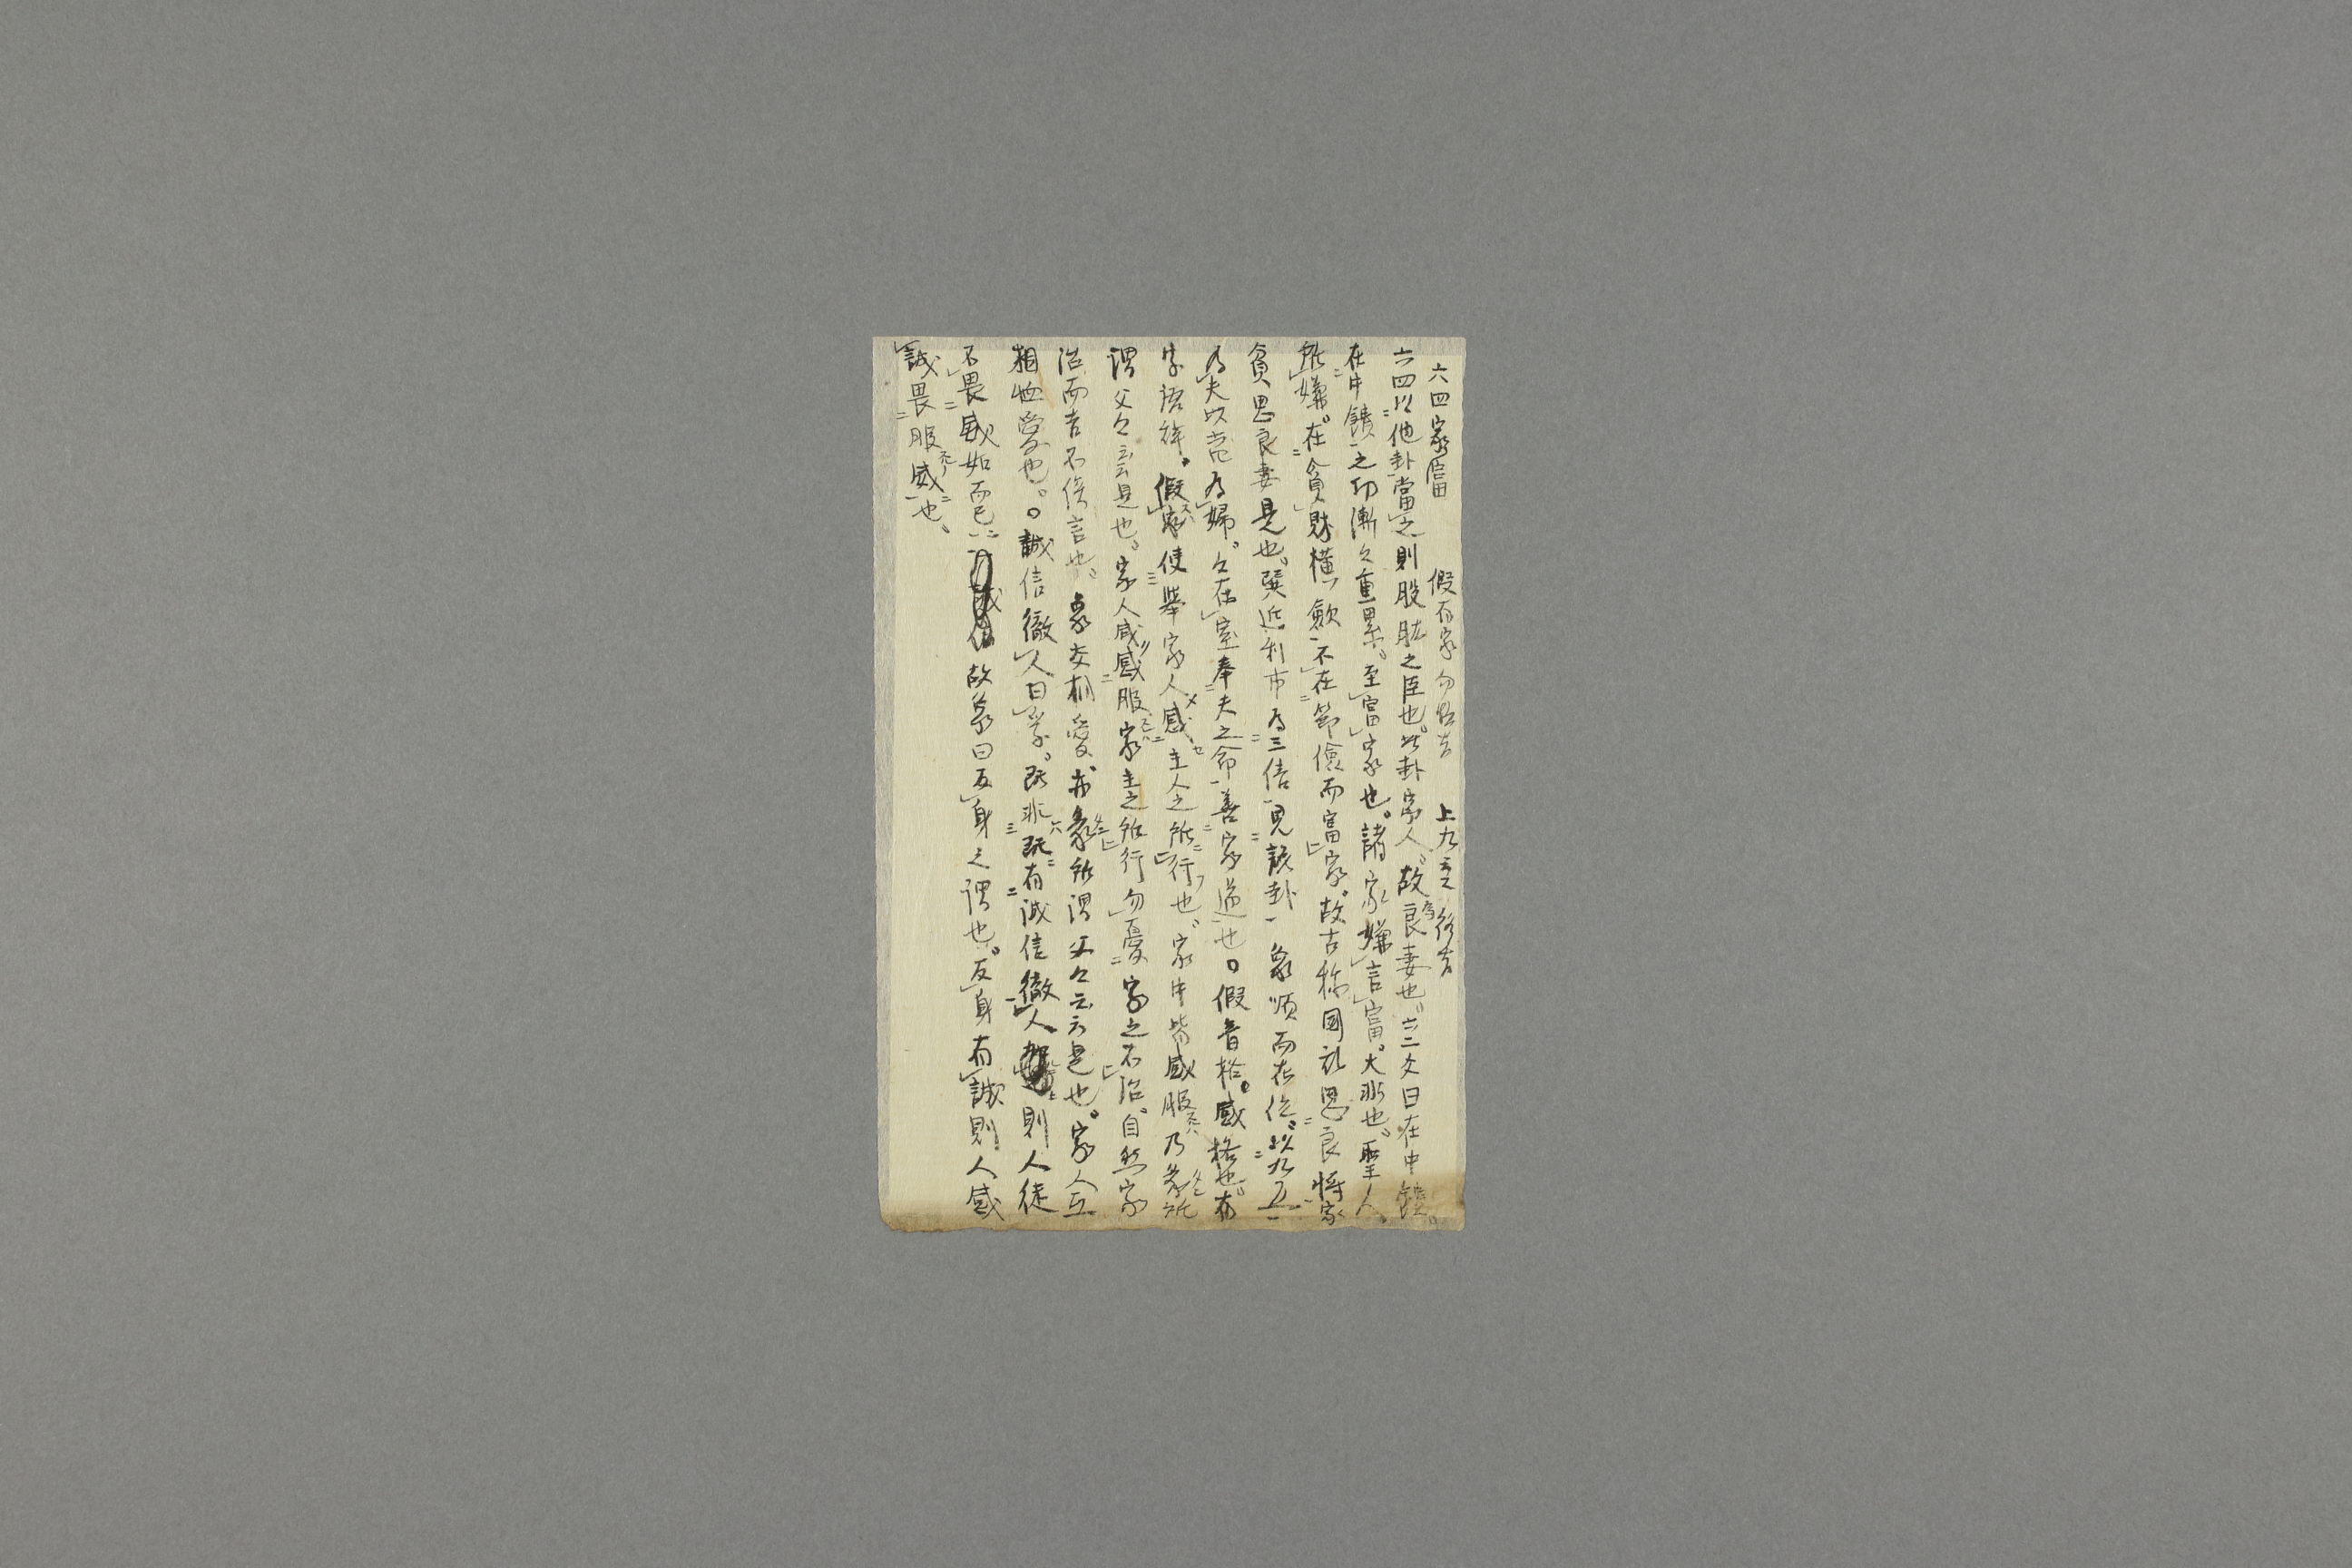 六四家富 假有家勿恤吉 上九 終吉
六四以他卦當之則股肱之臣也此卦家人故良妻也六二爻曰在中饋
在中饋之功漸々重累至富家也諸家嫌言富大非也聖人
所嫌在貪財橫歛不在節儉而富家故古称國乱思良將家
貧思良妻是也巽近利市為三倍見説卦 象順而在位以九五
為夫以六四為婦々在室奉夫之命善家道也〇假音格感格也有
字語祥假家使舉家人感主人之所行也家中皆感服乃象所
謂父々云云是也家人咸感服家主之所行勿憂家之不治自然家
治而吉不俟言也象交相愛亦彖所謂父々云云是也家人互
相恤愛也〇誠信徹人曰孚既非既有誠信徹人則人徒
不畏威如而已故象曰反身之謂也反身有誠則人感
誠畏服威也